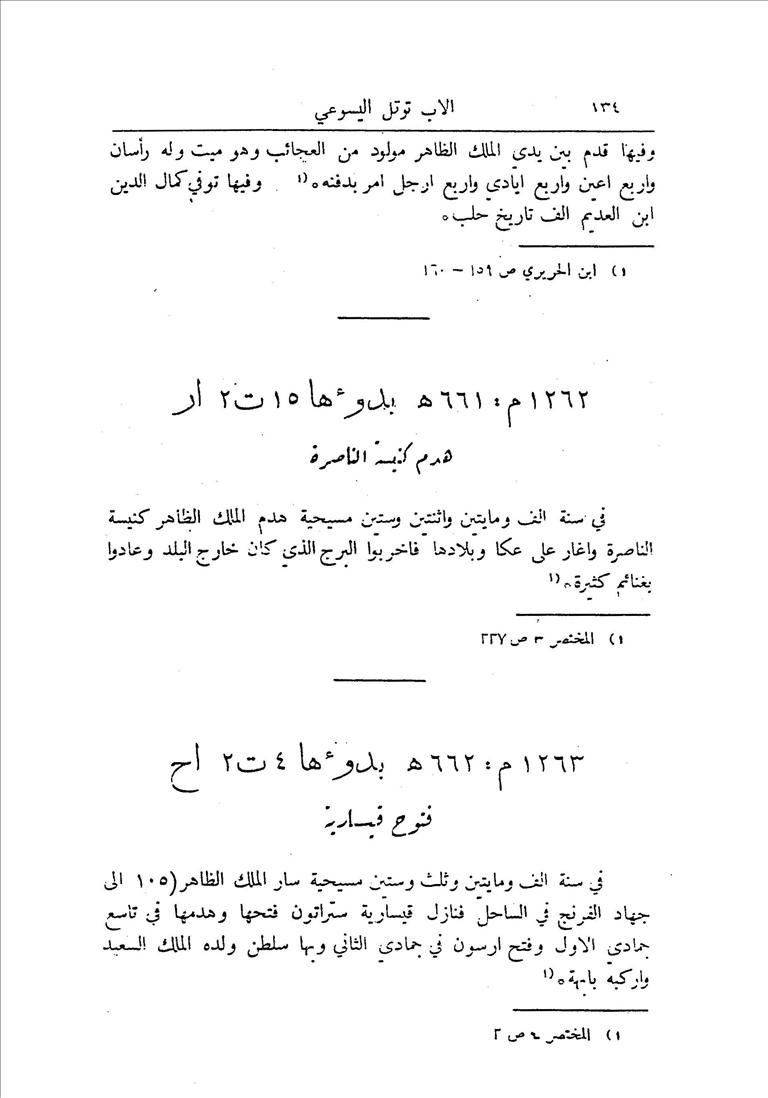 ١٣٤ الاب توتل اليسوعي
وفيها قدم بين يدي الملك الظاهر مولود من العجائب وهو ميت وله رأسان
واربع اعين واربع ايادي واربع ارجل امر بدفنه ٠ ١) وفيها توفي كمال الدين
ابن العديم الف تاريخ حلب ٠
١) ابن الحريري ص ١٥٩ – ١٦٠
١٢٦٢ م : ٦٦١ ه بدوءها ١٥ ت٢ ار
هدم كنيسة الناصرة
في سنة الف ومايتين واثنتين وستين مسيحية هدم الملك الظاهر كنيسة
الناصرة واغار على عكا وبلادها فاخربوا البرج الذي كان خارج البلد وعادوا
بغنائم كثيرة ٠ ١)
١) المختصر ٣ ص ٢٢٧
١٢٦٣ م : ٦٦٢ ه بدوءها ٤ ت٢ اح
فتوح قيسارية
في سنة الف ومايتين وثلث وستين مسيحية سار الملك الظاهر (١٠٥ الى
جهاد الفرنج في الساحل فنازل قيسارية ستراتون فتحها وهدمها في تاسع
جمادي الاول وفتح ارسون في جمادي الثاني وبها سلطن ولده الملك السعيد
واركبه بابهة ٠ ١)
١) المختصر ٤ ص ٢